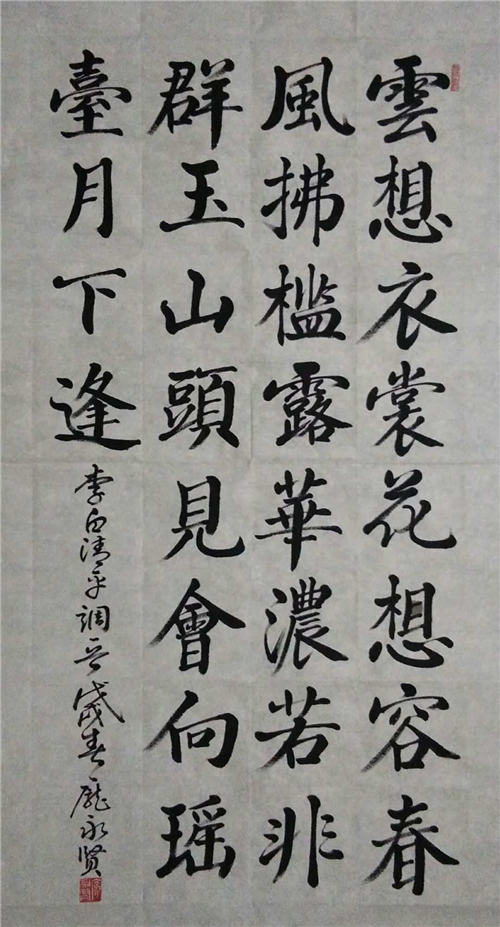 雲想衣裳花想容春
風拂槛露華濃若非
群玉山頭見會向瑶
臺月下逢
李白清平調 戊戌春 龐永贤